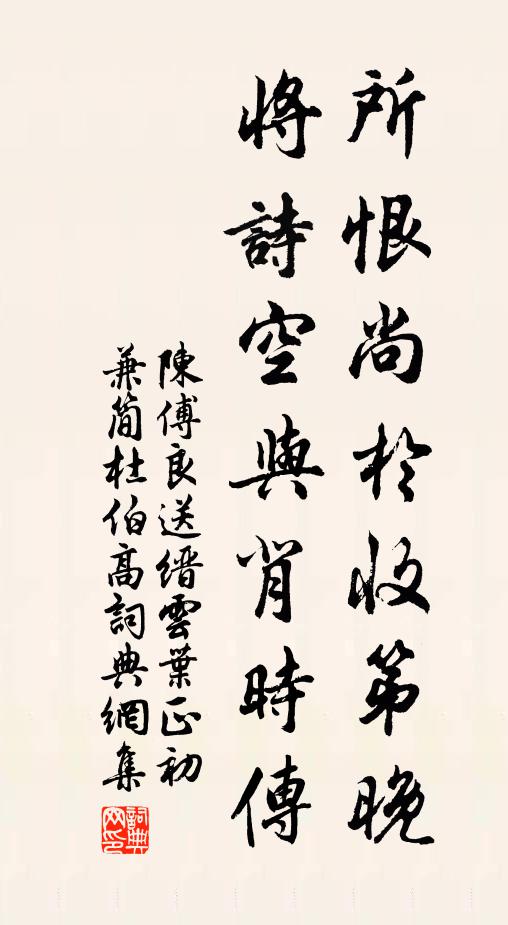 所恨尚於收第晚
將詩空與背時傳
陳傅良送縉雲葉正初
兼簡杜伯高詞典網集
詞典
网印